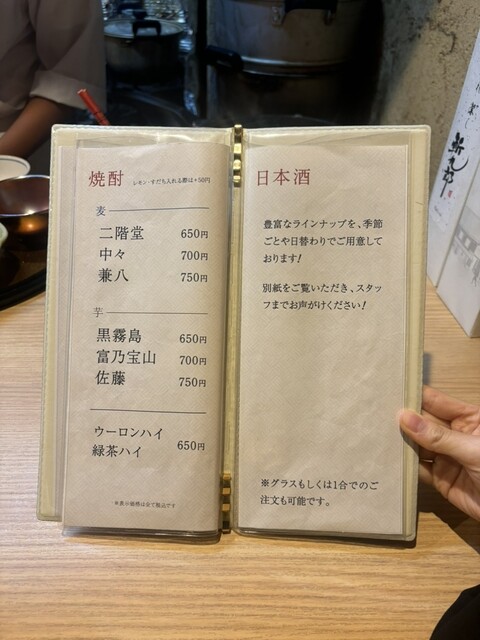 焼酎 レモン・すだち入れる際は+50円
麦
二階堂 650円
中々 700円
兼八 750円
芋
黒霧島 650円
富乃宝山 700円
佐藤 750円
ウーロンハイ
緑茶ハイ 650円
※表示価格は全て税込です
日本酒
豊富なラインナップを、季節
ごとや日替わりでご用意して
おります!
別紙をご覧いただき、スタッ
フまでお声がけください!
※グラスもしくは1合でのご
注文も可能です。